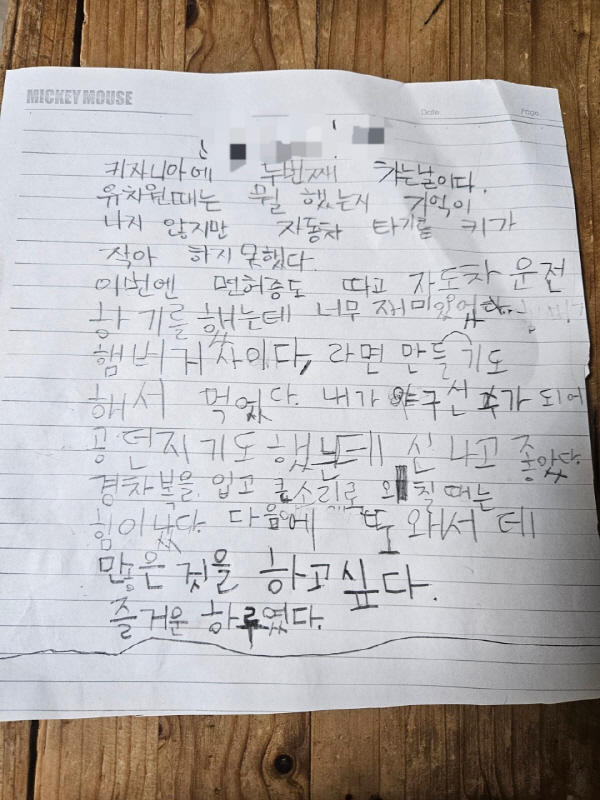 MICKEY MOUSE
Date
Page
키자니아에 두번째 가는날이다.
유차원때는 뭘 했는지 기억이
나지 않지만 자동차 타기를 키가
작아 하지못했다.
이번엔 면허증도 따고 자도차 운전
하기를 했는데 너무 재미있었다.
햄버거 사이다, 라면 만들기도
해서 먹었다. 내가 야구선수가 되어
공던지기도 했는데 신나고 좋았다.
경차복을 입고 큰소리로 외칠때는
힘이 났다. 다음에 또 와서 데
많은 것을 하고싶다.
즐거운 하루였다.